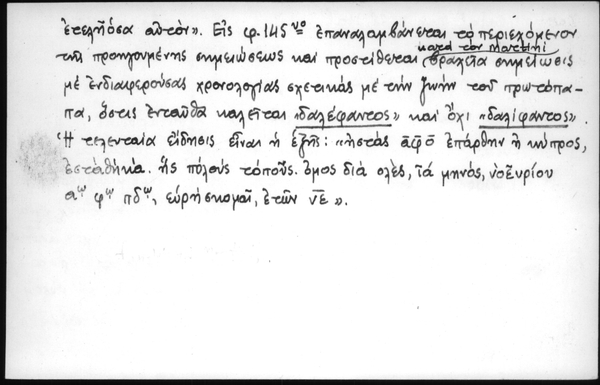 ἐτεληόσα αὐτόν». Εἰς φ. 145νο ἐπαναλαμβάνεται τὸ περιεχόμενον
κατὰ τὸν Martini
τῆς προηγουμένης σημειώσεως καὶ προστίθεται βραχεῖα σημείωσις
μὲ ἐνδιαφερούσας χρονολογίας σχετικὰς μὲ τὴν ζωὴν τοῦ πρωτοπα-
πα, ὅστις ἐνταῦθα καλεῖται «δαλέφαντος» καὶ ὄχι «δαλίφαντος».
Ἡ τελευταία εἴδησις εἶναι ἡ ἑξῆς: «ἡστὰς αφο ἐπάρθην ἡ κύπρος,
ἐστάθηκα. ἠς πολοὺς τόπους. ὅμος διὰ ολὲς, τὰ μηνὸς, νοευρίου
αω φω πδω, εὑρήσκομαι, ἐτῶν νε».